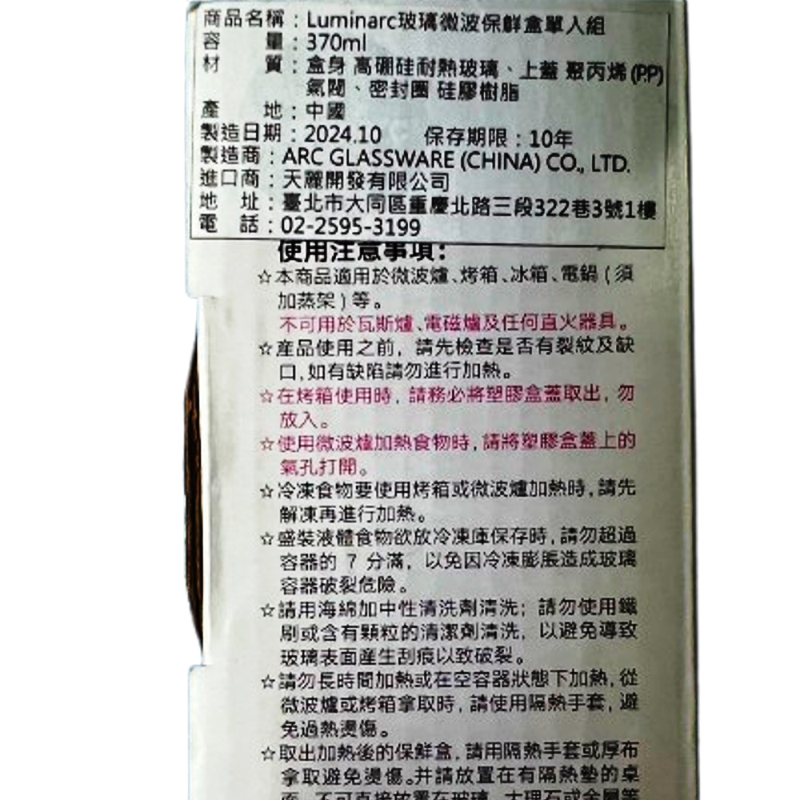 商品名稱：Luminarc玻璃微波保鮮盒單入組
容　　量：370ml
材　　質：盒身 高硼硅耐熱玻璃、上蓋 聚丙烯(PP)
氣閥、密封圈 硅膠樹脂
產　　地：中國
製造日期：2024.10　保存期限：10年
製造商：ARC GLASSWARE (CHINA) CO., LTD.
進口商：天麗開發有限公司
地　址：臺北市大同區重慶北路三段322巷3號1樓
電　話：02-2595-3199
使用注意事項：
☆本商品適用於微波爐、烤箱、冰箱、電鍋（須
加蒸架）等。
不可用於瓦斯爐、電磁爐及任何直火器具。
☆產品使用之前，請先檢查是否有裂紋及缺
口，如有缺陷請勿進行加熱。
☆在烤箱使用時，請務必將塑膠盒蓋取出，勿
放入。
☆使用微波爐加熱食物時，請將塑膠盒蓋上的
氣孔打開。
☆冷凍食物要使用烤箱或微波爐加熱時，請先
解凍再進行加熱。
☆盛裝液體食物欲放冷凍庫保存時，請勿超過
容器的 7 分滿，以免因冷凍膨脹造成玻璃
容器破裂危險。
☆請用海綿加中性清洗劑清洗；請勿使用鐵
刷或含有顆粒的清潔劑清洗，以避免導致
玻璃表面產生刮痕以致破裂。
☆請勿長時間加熱或在空容器狀態下加熱，從
微波爐或烤箱拿取時，請使用隔熱手套，避
免過熱燙傷。
☆取出加熱後的保鮮盒，請用隔熱手套或厚布
拿取避免燙傷。并請放置在有隔熱墊的桌
面，不可直接放置在玻璃、大理石或金屬等